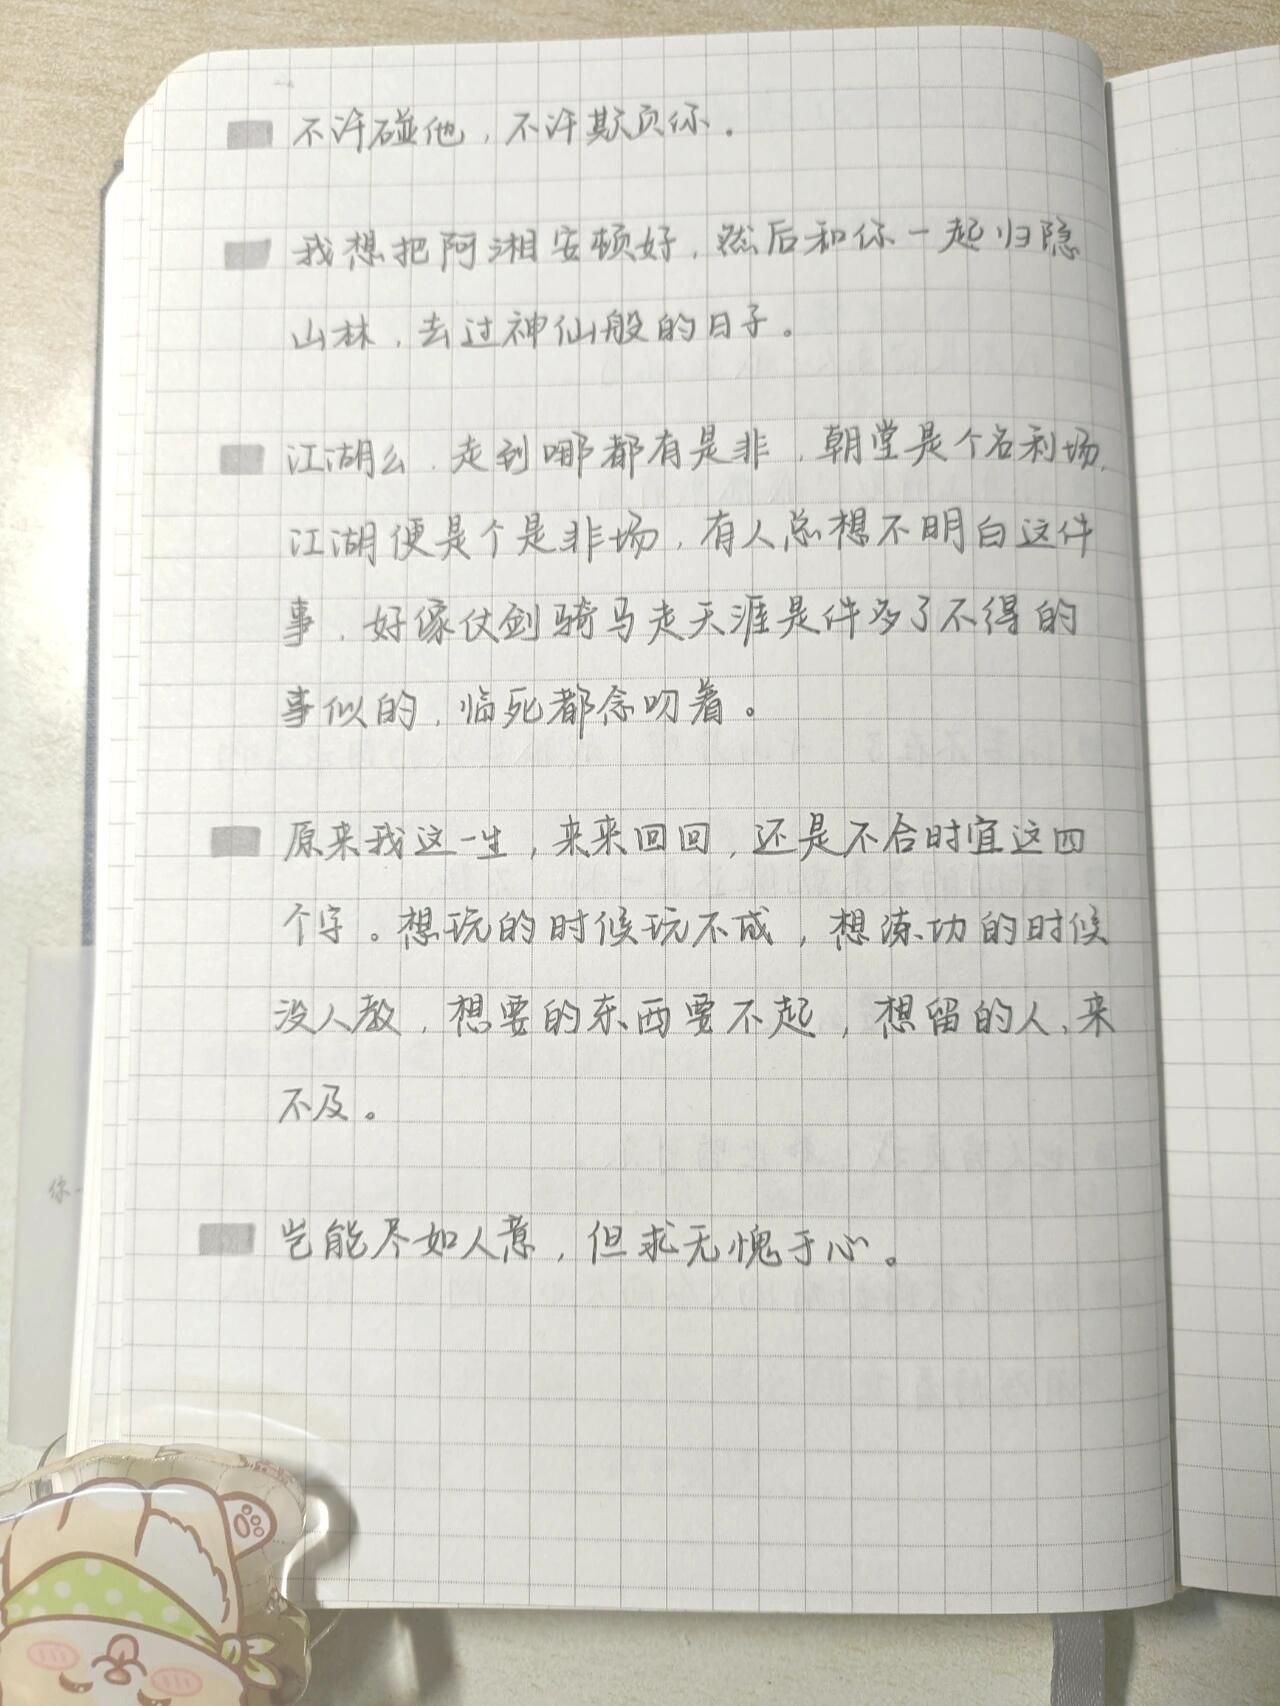 不许碰他，不许欺负你。
我想把阿湘安顿好，然后和你一起归隐
山林，去过神仙般的日子。
江湖么，走到哪都有是非，朝堂是个名利场，
江湖便是个是非场，有人总想不明白这件
事，好像仗剑骑马走天涯是件多了不得的
事似的，临死都念叨着。
原来我这一生，来来回回，还是不合时宜这四
个字。想玩的时候玩不成，想练功的时候
没人教，想要的东西要不起，想留的人、来
不及。
岂能尽如人意，但求无愧于心。
你一